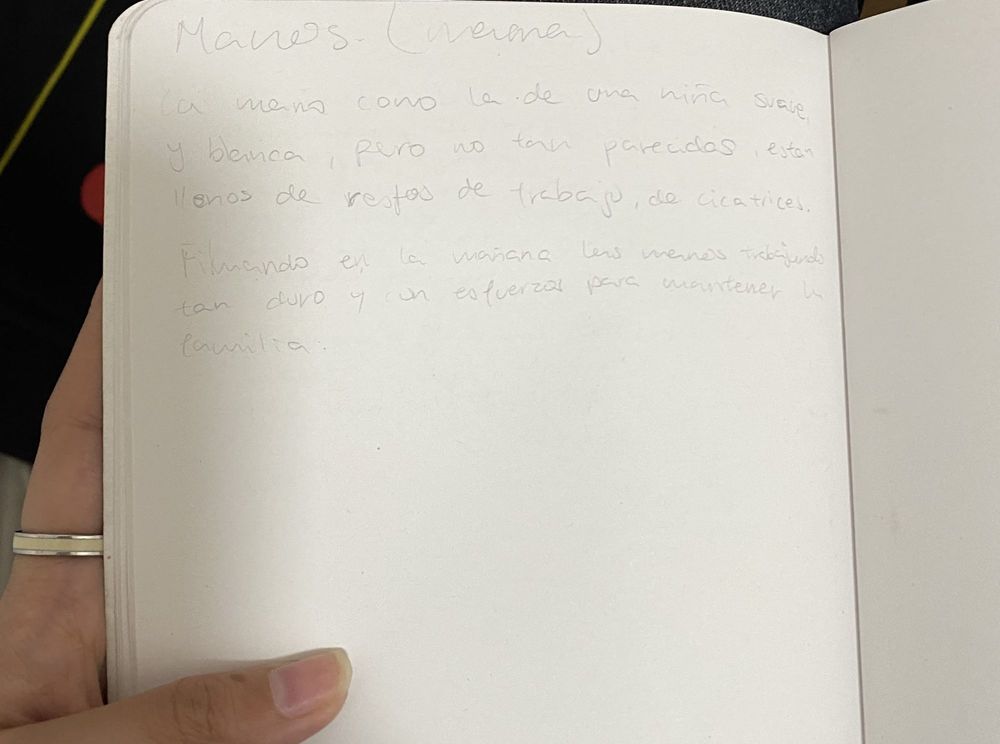 Manos. (mama)
La mano como la de una niña suave,
y blanca, pero no tan parecidas, estan
llenos de restos de trabajo, de cicatrices.
Filmando en la mañana las manos trabajando
tan duro y con esfuerzos para mantener la
familia.